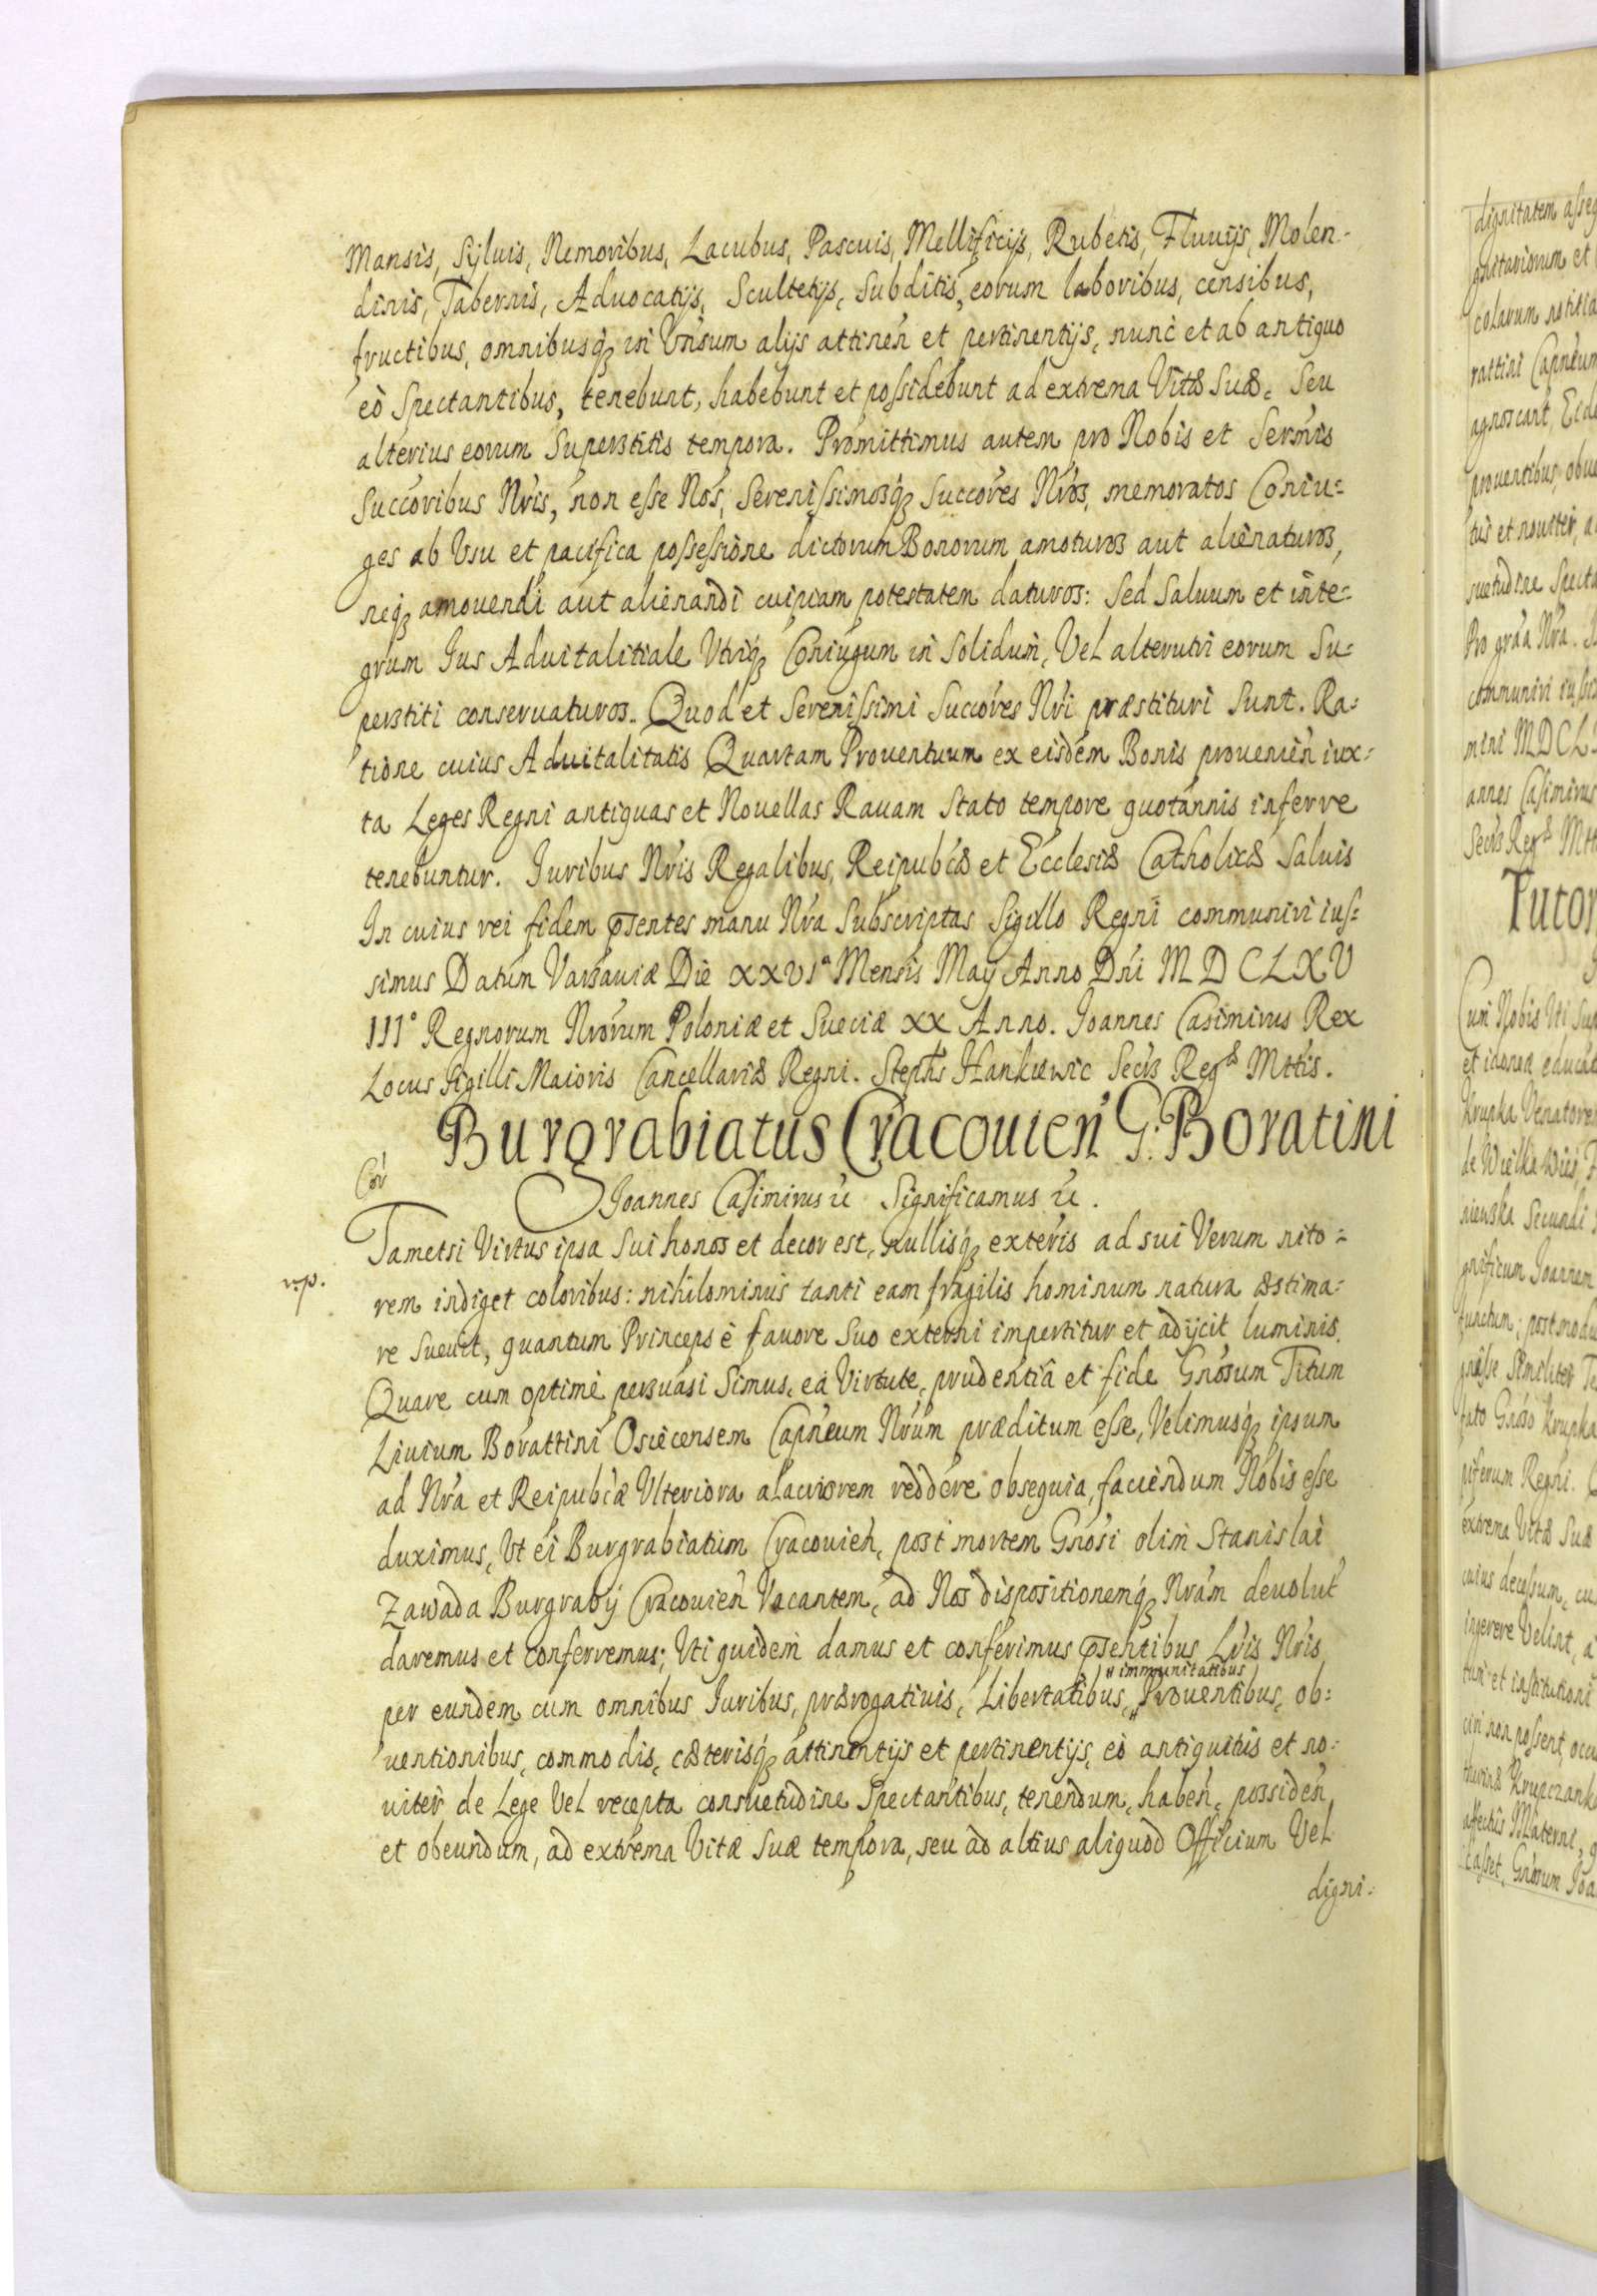 Mansis, Syluis, Nemoribus, Lacubus, Pascuis, Mellificijs, Rubetis, Fluuijs, Molen-
dinis, Tabernis, Aduocatijs, Scultetijs, Subditis, eorum laboribus, censibus,
fructibus, omnibusq́ꝫ in Vńsum alijs attineń et pertinentijs, nunc et ab antiquo
eò Spectantibus, tenebunt, habebunt et possidebunt ad extrema Vitæ Suæ, Seu
alterius eorum Superstitis tempora. Promittimus autem pro Nobis et Serm̃is
Succoribus Nr̃is, non esse Nos, Serenissimosq́ꝫ Succores Nr̃os, memoratos Coniu=
ges ab Vsu et pacifica possessione dictorum Bonorum amoturos aut alienaturos,
neq́ꝫ amouendi aut alienandi cuipiam potestatem daturos: Sed Saluum et inte=
grum Jus Aduitalitiale Vtriq́ꝫ Coniugum in Solidum, Vel alterutri eorum Su=
perstiti conseruaturos. Quod et Serenissimi Succores Nr̃i præstituri Sunt. Ra=
tione cuius Aduitalitatis Quartam Prouentuum ex eisdem Bonis prouenień iux=
ta Leges Regni antiquas et Nouellas Rauam Stato tempore quotannis inferre
tenebuntur. Juribus Nr̃is Regalibus, Reipub́cæ et Ecclesiæ Catholicæ Saluis
In cuius rei fidem p̃sentes manu Nr̃a Subscriptas Sigillo Regni communiri ius=
simus Datum Varsauiæ Die XXVIª Mensis Maij Anno Dńi MDCLXV
IIIº Regnorum Nr̃orum Poloniæ et Sueciæ XX Anno. Joannes Casimirus Rex
Locus Sigilli Maioris Cancellariæ Regni. Stephs Hankiewic Secrs Regæ Mttis.
Burgrabiatus Cracouień G: Boratini
Joannes Casimirus &c Significamus &c.
Tametsi Virtus ipsa Sui honos et decor est, nullisq́ꝫ exteris ad sui Verum nito=
rem indiget coloribus: nihilominus tanti eam fragilis hominum natura æstima=
re Sueuit, quantum Princeps è fauore Suo externi impertitur et adijcit luminis.
Quare cum optimè persuasi Simus, eâ Virtute, prudentiâ et fide Gnosum Titum
Liuium Borattini Osiecensem Capńeum Nr̃um præditum esse, Velimusq́ꝫ ipsum
ad Nr̃a et Reipub́cæ Vlteriora alacriorem reddere obsequia, faciendum Nobis esse
duximus, Vt ei Burgrabiatum Cracouień, post mortem Gnosi olim Stanislai
Zawada Burgrabij Cracouień Vacantem, ad Nos dispositionemq́ꝫ Nr̃am deuolut́
daremus et conferremus; Vti quidem damus et conferimus p̃sentibus Lr̃is Nr̃is
per eundem cum omnibus Juribus, prærogatiuis, Libertatibus, "immunitatibus" Prouentibus, ob=
uentionibus, commodis, cæterisq́ꝫ attinentijs et pertinentijs, eò antiquitùs et no=
uiter de Lege Vel recepta consuetudine Spectantibus, tenendum, habeń, possideń,
et obeundum, ad extrema Vitæ Suæ tempora, seu ad altius aliquod Officium Vel
digni=